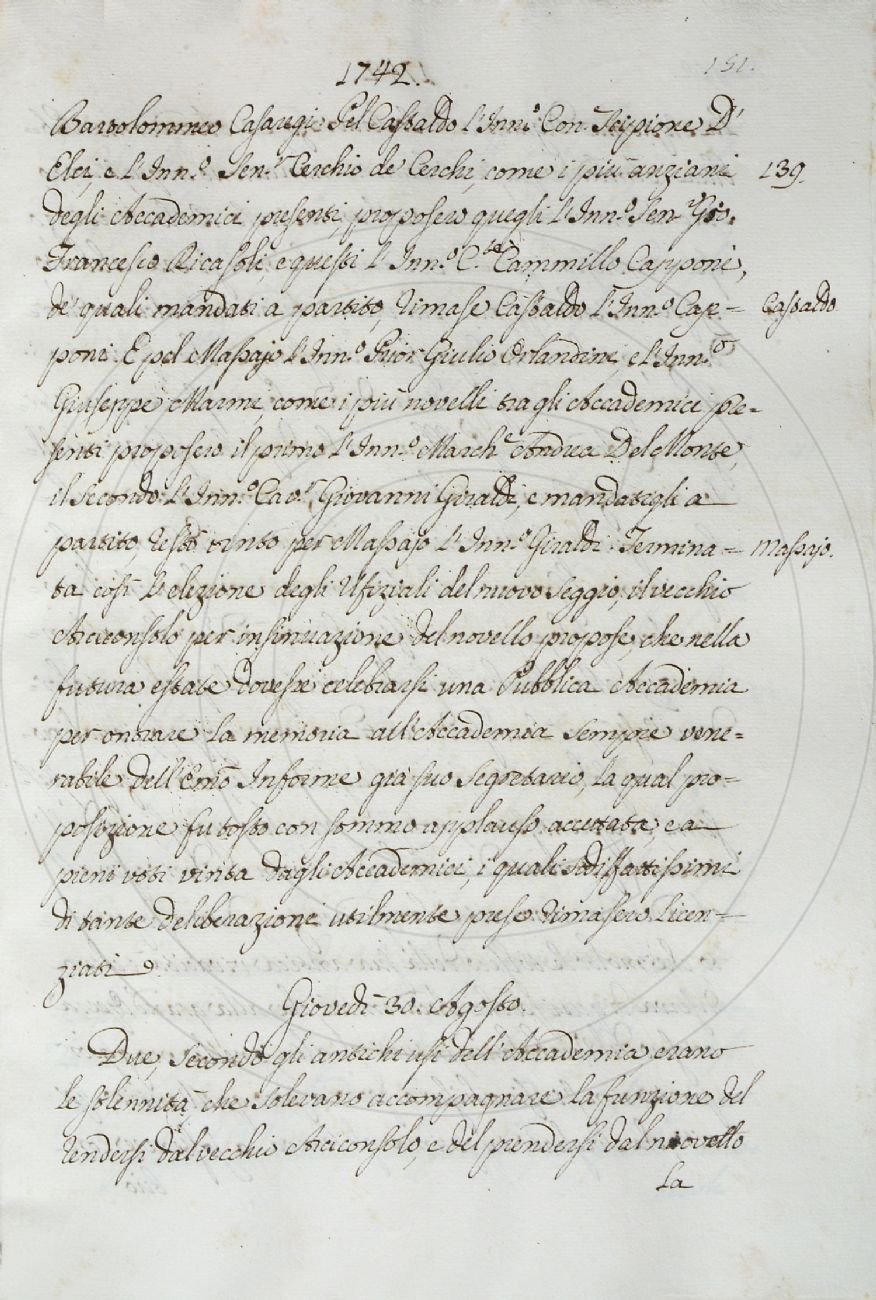 1742.
151.
Bartolommeo Casaregi. Pel Castaldo l'Inn.º Con. Scipione D'
Elci, e l'Inn.º Sen.r Cerchio de' Cerchi, come i più anziani
139.
degli Accademici presenti, proposero quegli l'Inn.º Sen.r Gio.
Francesco Ricasoli, e questi l'Inn.º C.te Cammillo Capponi,
de' quali mandati a partito, rimase Castaldo l'Inn.º Cap=
Castaldo
poni. E pel Massajo l'Inn.º Prior Giulio Orlandini, e l'Inn.º
Giuseppe Marmi, come i più novelli tra gli Accademici pre=
senti proposero il primo l'Inn.º March.e Andrea Del Monte,
il secondo l'Inn.º Cav.r Giovanni Giraldi, e mandatigli a
partito, restò vinto per Massajo l'Inn.º Giraldi. Termina=
Massajo.
ta così l'elezione degli Ufiziali del nuovo seggio, il vecchio
Arciconsolo per insinuazione del novello propose, che nella
futura estate dovesse celebrarsi una Pubblica Accademia
per onorare la memoria all'Accademia sempre vene=
rabile dell'Em̃o Informe già suo Segretario, la qual pro=
posizione fu tosto con sommo applauso accettata, e a
pieni voti vinta dagli Accademici, i quali sodisfattissimi
di tante deliberazioni utilmente prese rimasero licen=
ziati.
Giovedì 30. Agosto.
Due, secondo gli antichi usi dell'Accademia erano
le solennità, che solevano accompagnare la funzione del
rendersi dal vecchio Arciconsolo, e del prendersi dal novello
la